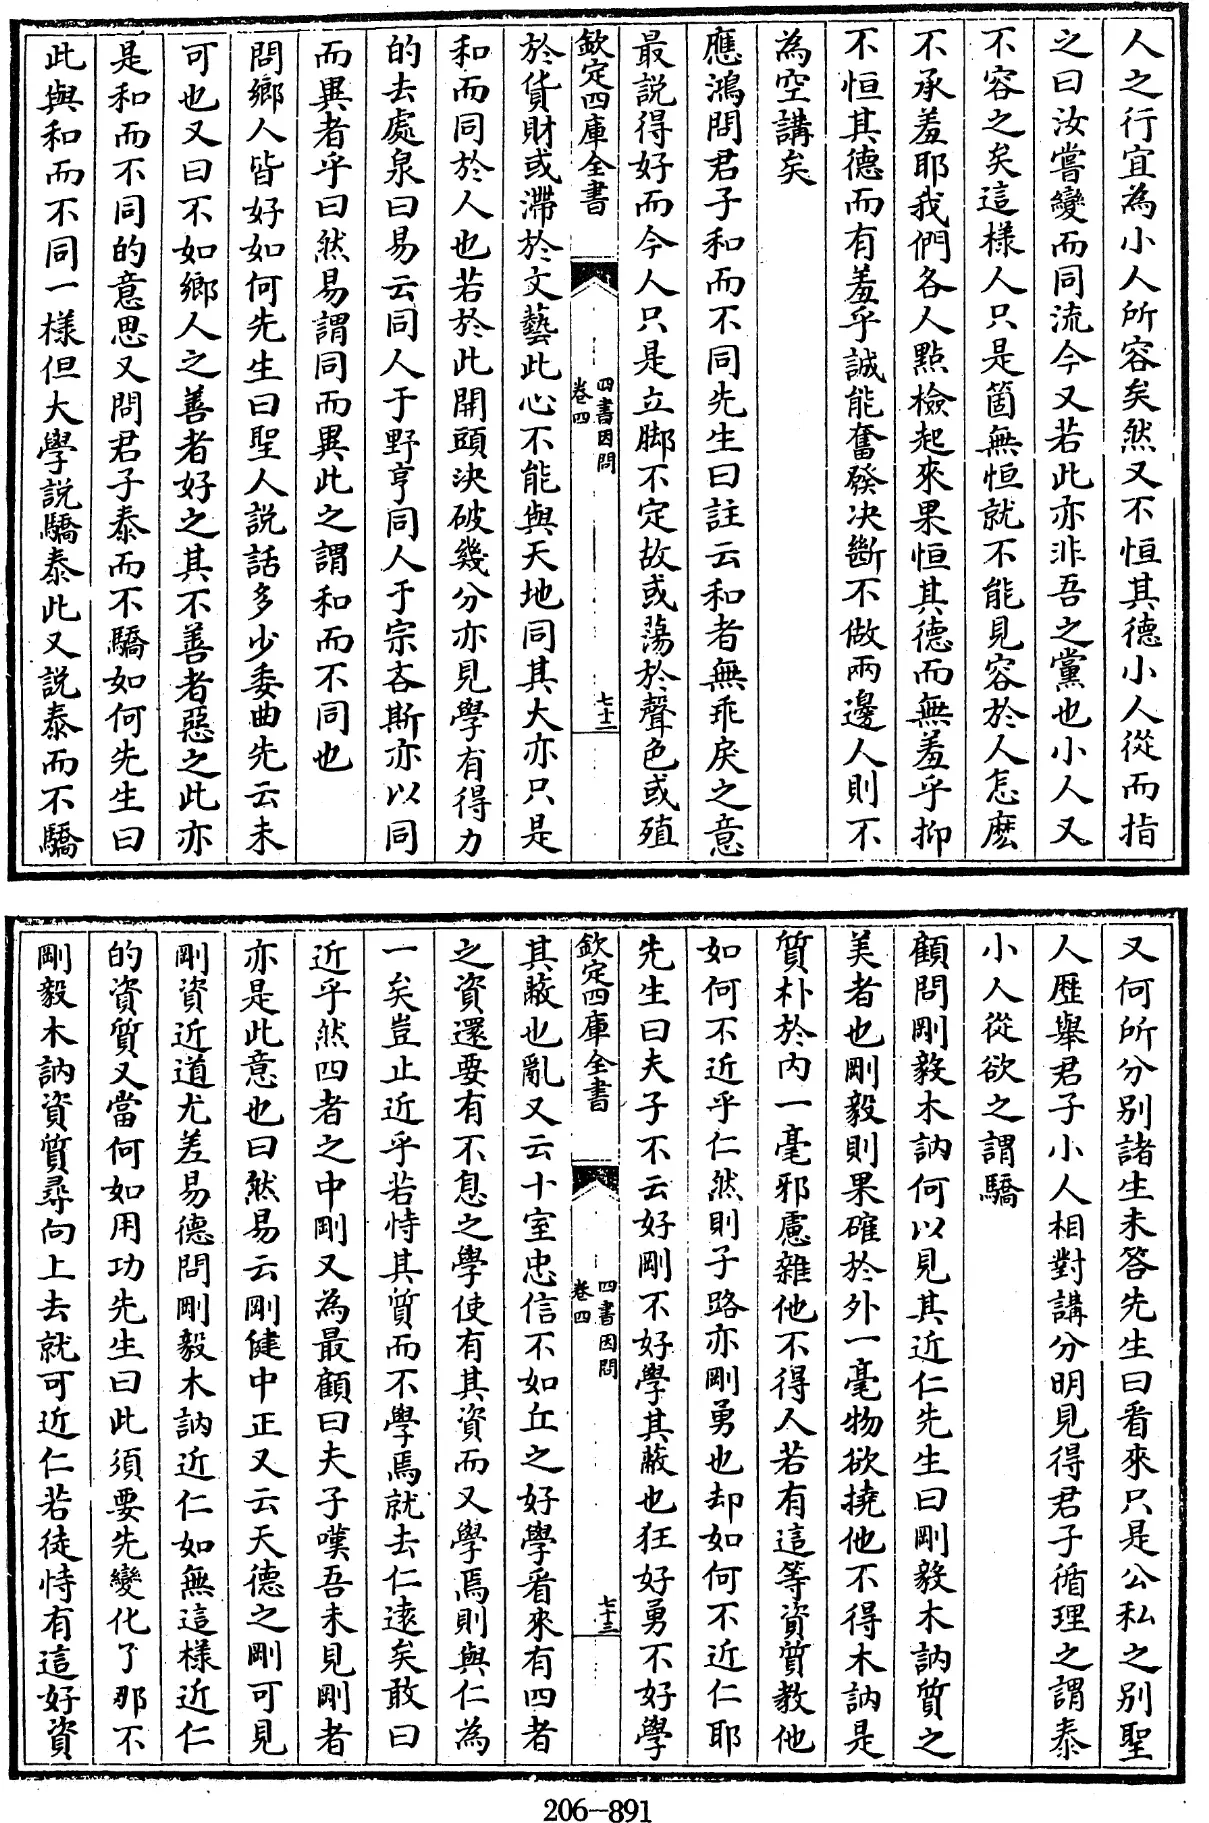 人之行宜為小人所容矣然又不恒其德小人從而指
之曰汝嘗變而同流今又若此亦非吾之黨也小人又
不容之矣這樣人只是箇無恒就不能見容於人怎麽
不承羞耶我們各人點檢起來果恒其德而無羞乎抑
不恒其德而有羞乎誠能奮發决斷不做兩邊人則不
為空講矣
應鴻問君子和而不同先生曰註云和者無乖戾之意
最説得好而今人只是立脚不定故或蕩於聲色或殖
欽定四庫全書
四書因問
卷四
七十二
於貨財或滯於文藝此心不能與天地同其大亦只是
和而同於人也若於此開頭決破幾分亦見學有得力
的去處泉曰易云同人于野亨同人于宗吝斯亦以同
而異者乎曰然易謂同而異此之謂和而不同也
問鄉人皆好如何先生曰聖人説話多少委曲先云未
可也又曰不如鄉人之善者好之其不善者惡之此亦
是和而不同的意思又問君子泰而不驕如何先生曰
此與和而不同一樣但大學説驕泰此又説泰而不驕
又何所分別諸生未答先生曰看來只是公私之別聖
人歷舉君子小人相對講分明見得君子循理之謂泰
小人從欲之謂驕
顧問剛毅木訥何以見其近仁先生曰剛毅木訥質之
美者也剛毅則果確於外一毫物欲撓他不得木訥是
質朴於内一毫邪慮雜他不得人若有這等資質教他
如何不近乎仁然則子路亦剛勇也却如何不近仁耶
先生曰夫子不云好剛不好學其蔽也狂好勇不好學
欽定四庫全書
四書因問
卷四
七十三
其蔽也亂又云十室忠信不如丘之好學看來有四者
之資還要有不息之學使有其資而又學焉則與仁為
一矣豈止近乎若恃其質而不學焉就去仁遠矣敢曰
近乎然四者之中剛又為最顧曰夫子嘆吾未見剛者
亦是此意也曰然易云剛健中正又云天德之剛可見
剛資近道尤差易德問剛毅木訥近仁如無這樣近仁
的資質又當何如用功先生曰此須要先變化了那不
剛毅木訥資質尋向上去就可近仁若徒恃有這好資
206-891